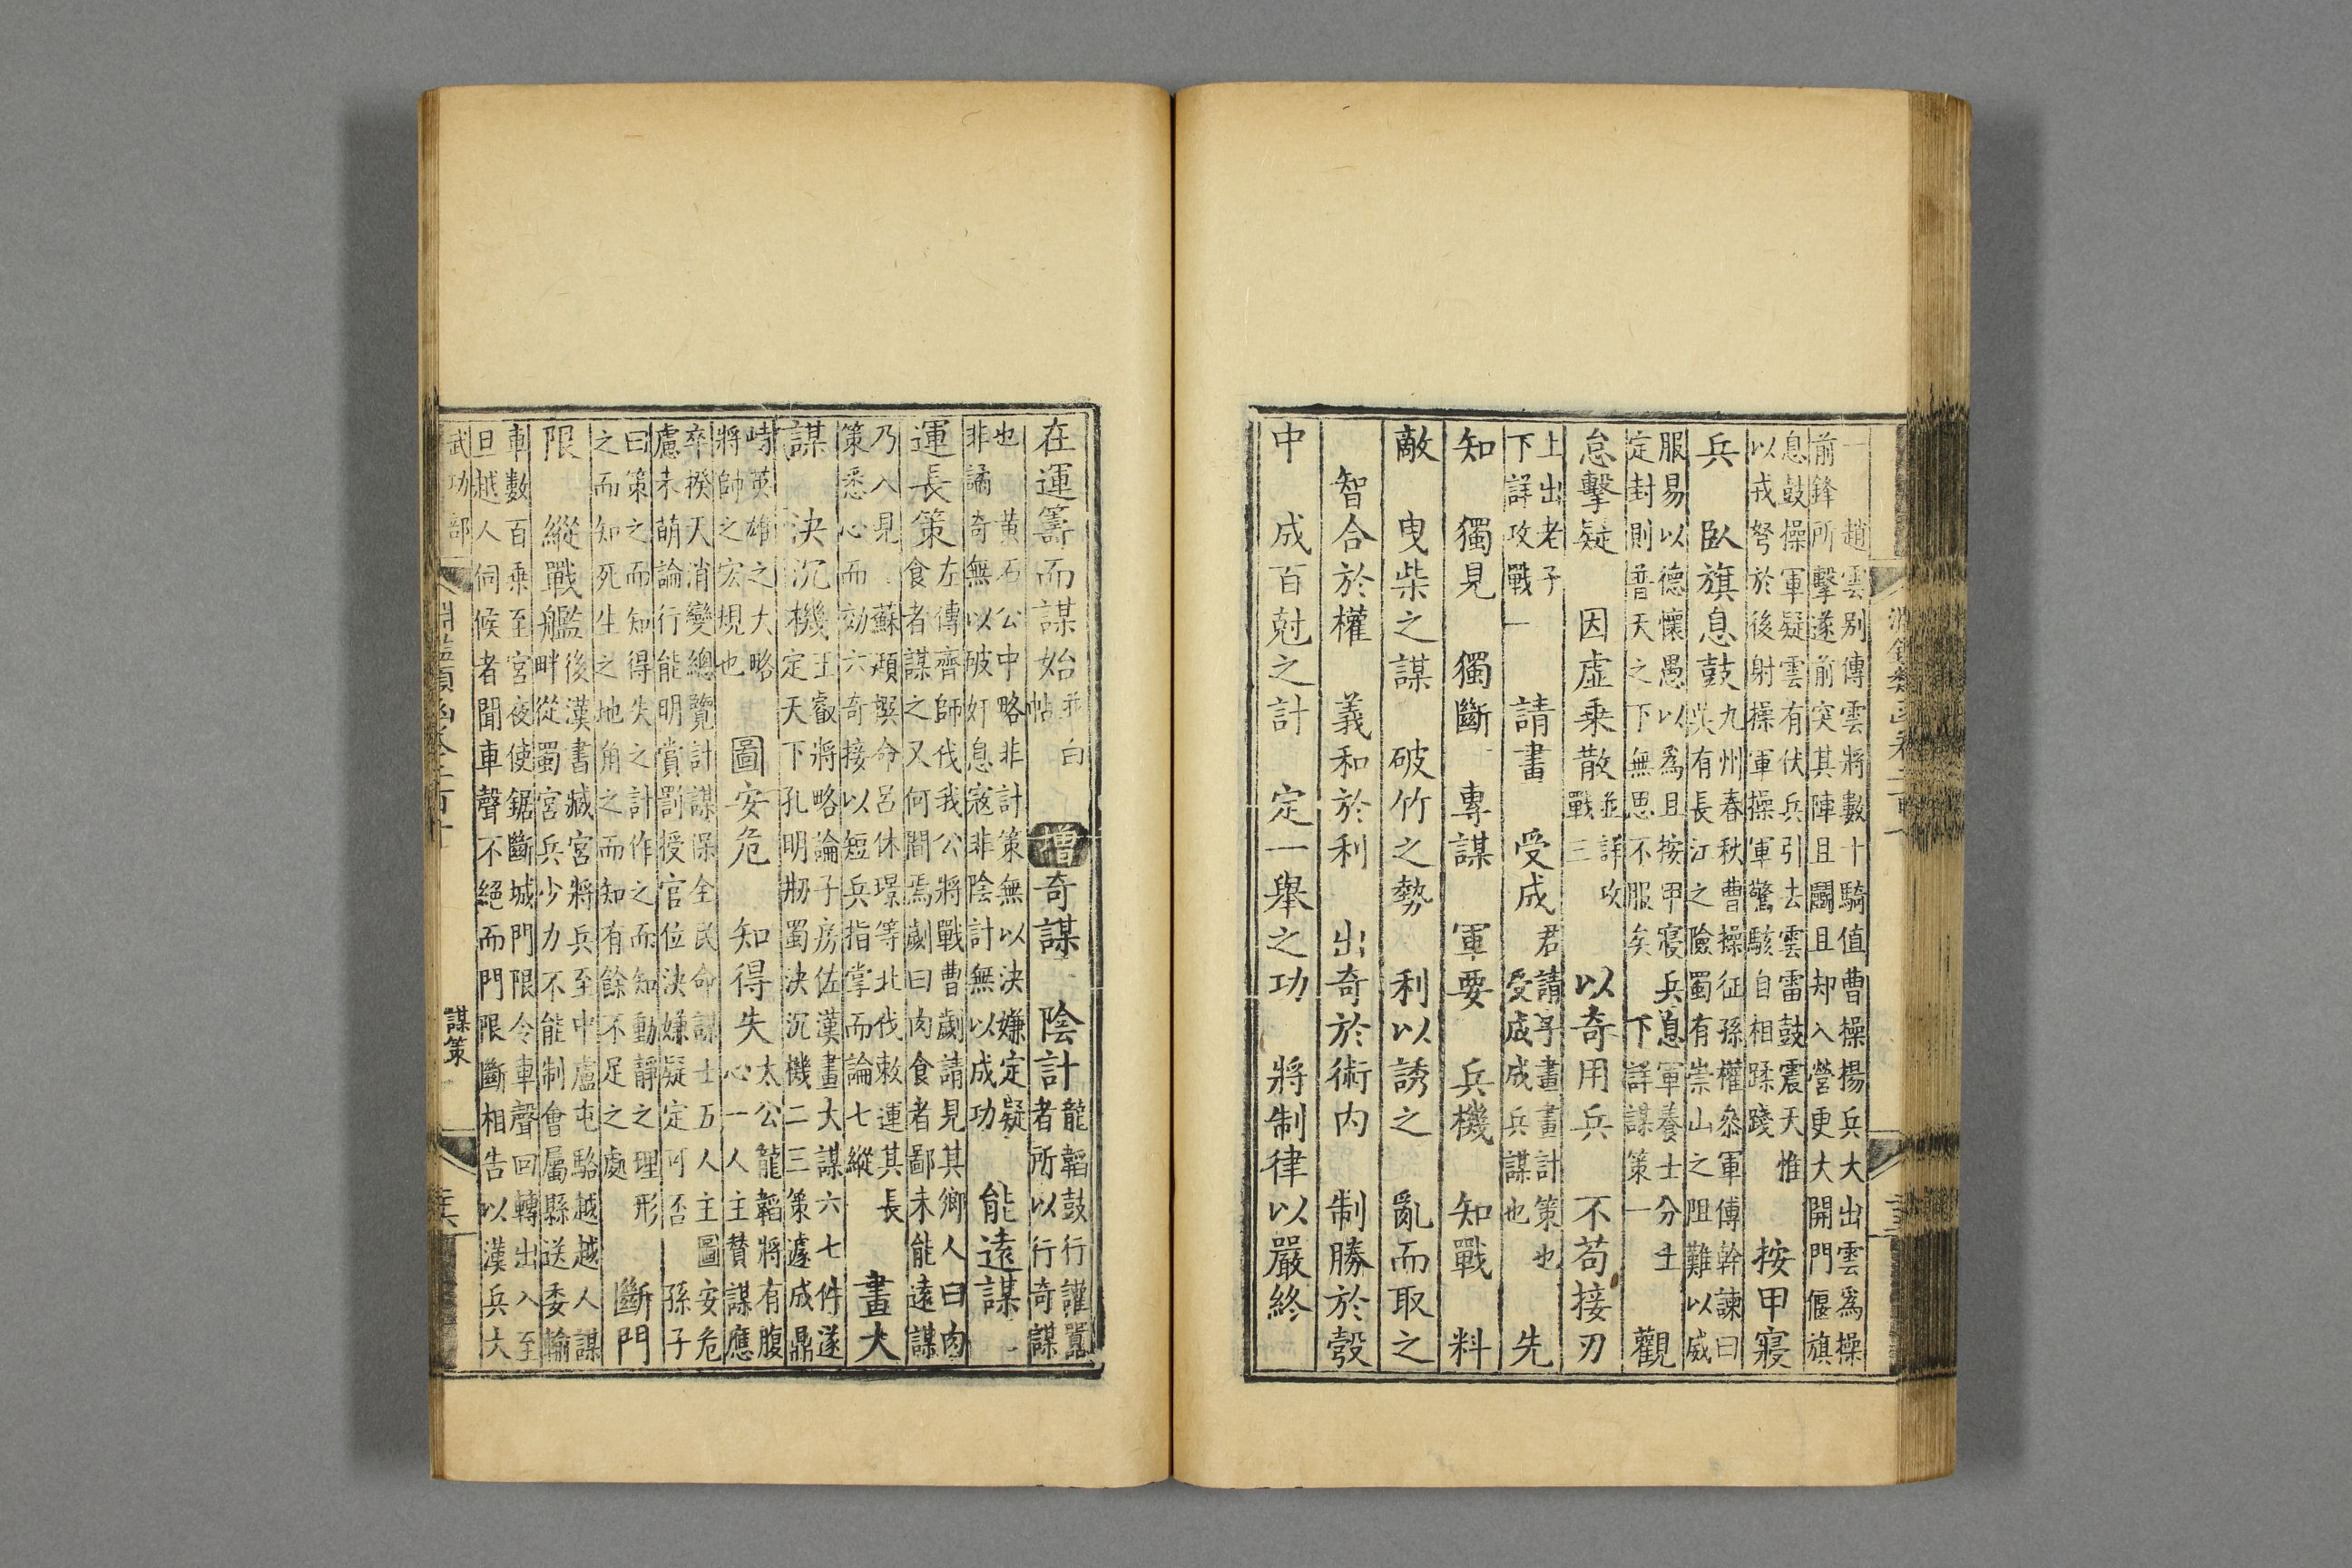 一　趙雲別傳雲將數十騎值曹操揚兵大出雲爲操
前鋒所擊遂前突其陣且鬭且却入營更大開門偃旗
息鼓操軍疑雲有伏兵引去雲雷鼓震天惟
以戎弩於後射操軍操軍驚駭自相蹂踐　按甲寢
兵　臥旗息鼓
九州春秋曹操征孫權叅軍傅幹諫曰
吳有長江之險蜀有崇山之阻難以威
服易以德懷愚以爲且按甲寢兵息軍養士分土
定封則普天之下無思不服矣　下詳謀策一　觀
怠擊疑　因虛乘散
並詳攻
戰三
以奇用兵　不苟接刃
上出老子
下詳攻戰一
請畫　受成
君請予畫畫計策也
受成成兵謀也
先
知　獨見　獨斷　專謀　軍要　兵機　知戰　料
敵　曳柴之謀　破竹之勢　利以誘之　亂而取之
智合於權　義和於利　出奇於術内　制勝於彀
中　成百尅之計　定一舉之功　將制律以嚴終
在運籌而謀始
並白
帖
增奇謀　陰計
龍韜鼓行讙嚣
者所以行奇謀
也　黃石公中略非計策無以決嫌定疑
非譎奇無以破奸息寇非陰計無以成功　能遠謀
運長策
左傳齊師伐我公將戰曹劌請見其鄉人曰肉
食者謀之又何間焉劌曰肉食者鄙未能遠謀
乃入見　蘇頲㮣命呂休璟等北伐敕運其長
策悉心而効六奇接以短兵指掌而論七縱　畫大
謀　決沉機
王叡將略論子房佐漢畫大謀六七件遂
定天下孔明刱蜀決沉機二三策遽成鼎
峙英雄之大略
將帥之宏規也
圖安危　知得失
太公龍韜將有腹
心一人主贊謀應
卒揆天消變總覽計謀保全民命謀士五人主圖安危
慮未萌論行能明賞罰授官位決嫌疑定可否　孫子
曰策之而知得失之計作之而知動靜之理形
之而知死生之地角之而知有餘不足之處　斷門
限　縱戰艦
後漢書臧宮將兵至中盧屯駱越越人謀
畔從蜀宮兵少力不能制會屬縣送委輸
車數百乘至宮夜使鋸斷城門限令車聲回轉出入至
旦越人伺候者聞車聲不絕而門限斷相告以漢兵大
武功部
謀策